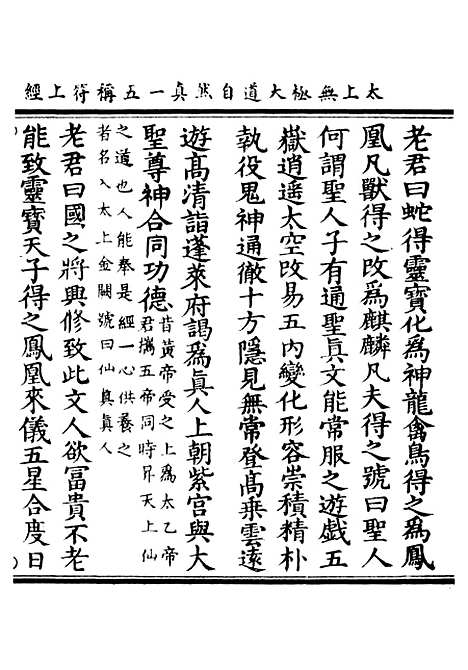 太上無極大道自然真一五稱符上經
老君曰蛇得靈寶化為神龍禽鳥得之為鳳
凰凡獸得之改為麒麟凡夫得之號曰聖人
何謂聖人子有通聖真文能常服之遊戲五
嶽逍遥太空改易五內變化形容崇積精朴
執役鬼神通徹十方隱見無常登高乘雲遠
遊高清詣蓬萊府謁為真人上朝紫宮與大
聖尊神合同功德昔黃帝受之上為太乙帝
君擕五帝同時昇天上仙
之道也人能奉是經一心供養之
者名入太上金闕號曰仙真真人
老君曰國之將興修致此文人欲冨貴不老
能致靈寶天子得之鳳凰來儀五星合度日